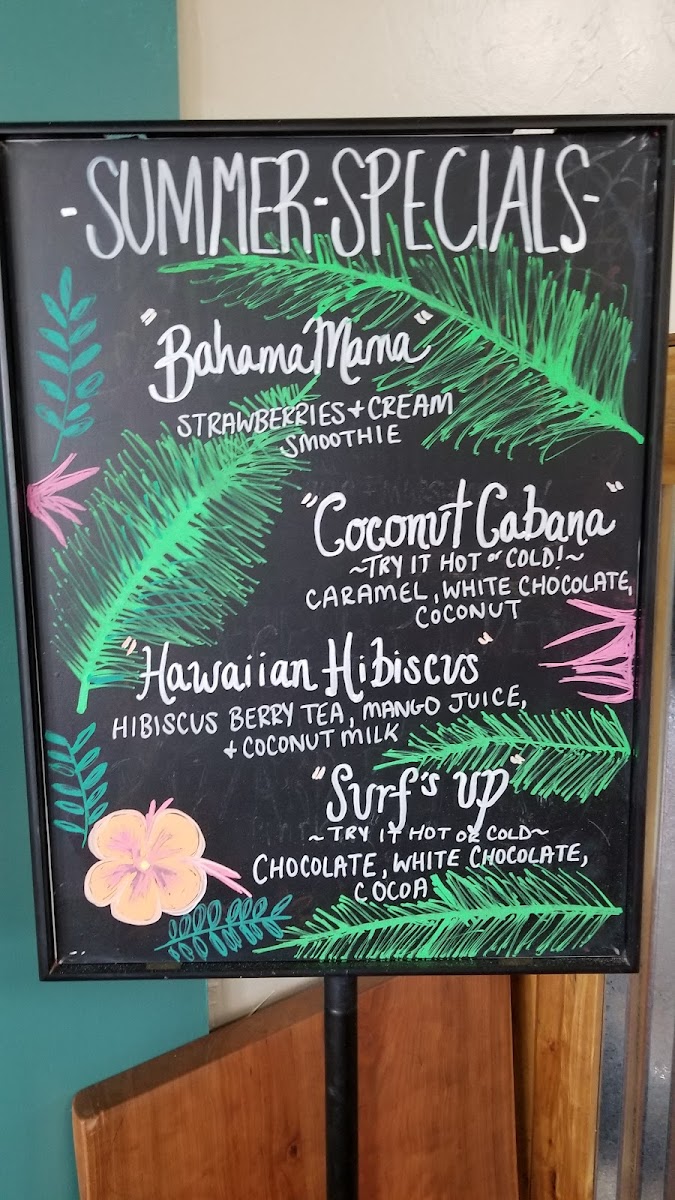 -SUMMER-SPECIALS-
"Bahama Mama"
STRAWBERRIES + CREAM
SMOOTHIE
"Coconut Cabana"
~TRY IT HOT or COLD!~
CARAMEL, WHITE CHOCOLATE,
COCONUT
"Hawaiian Hibiscus"
HIBISCUS BERRY TEA, MANGO JUICE,
+ COCONUT MILK
"Surf's up"
~TRY IT HOT or COLD~
CHOCOLATE, WHITE CHOCOLATE,
COCOA